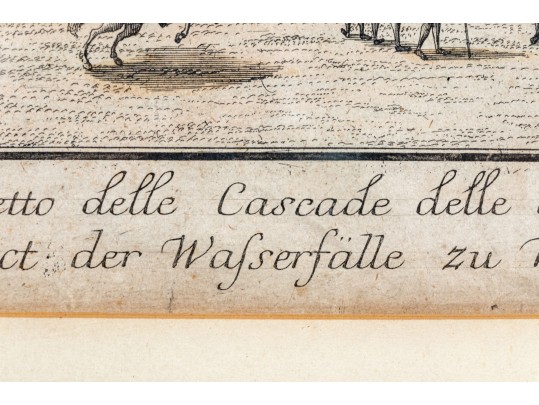 etto delle Cascade delle
ct. der Waſserfälle zu